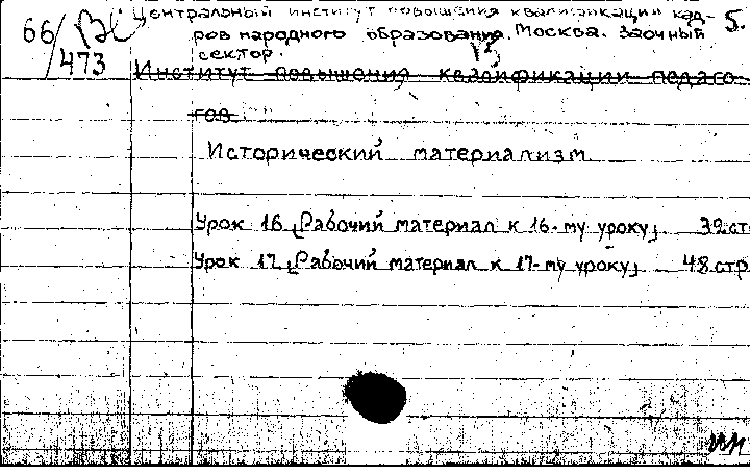 66/473
Центральный институт повышения квалификации кад- 5.
ров народного образования, Москва. Заочный
сектор.
Институт повышения квалификации педаго
гов
Исторический материализм
Урок 16 [Рабочий материал к 16-му уроку] 32 ст
Урок 17 [Рабочий материал к 17-му уроку] 48 стр